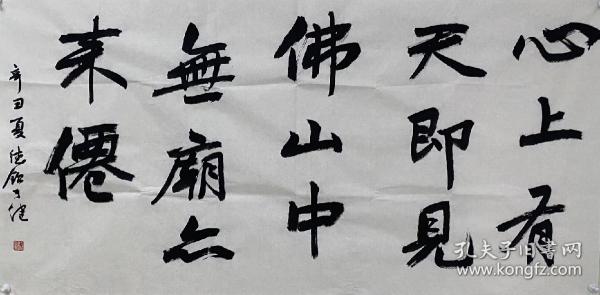 心上有
天即見
佛山中
無廟亦
来僊
辛丑夏
孔夫子旧书网
www.kongfz.com